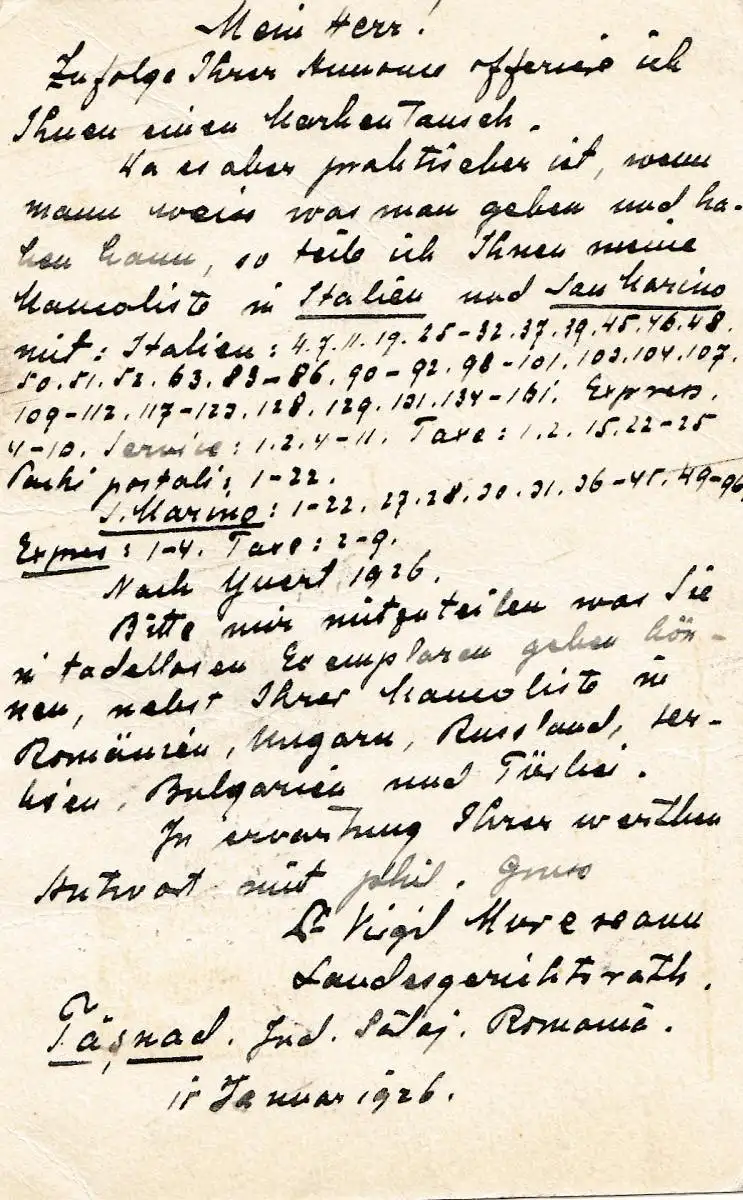 Mein Herr!
Zufolge Ihrer Annonce offeriere ich
Ihnen einen Markentausch.
Da es aber praktischer ist, wenn
mann weiss was man geben und ha-
ben kann, so teile ich Ihnen meine
Mancoliste in Italien und San Marino
mit: Italien: 4.7.11.19.25-32.37.39.45.46.48.
50.51.52.63.83-86.90-92.98-101.103.104.107.
109-112.117-123.128.129.131.134-161. Expres.
4-10. Service: 1.2.4-11. Taxe: 1.2.15.22-25
Pachi postali: 1-22.
S. Marino: 1-22.27.28.30.31.36-45.49-96
Expres: 1-4. Taxe: 2-9.
Nach Yvert 1926.
Bitte mir mitzuteilen was Sie
in tadellosen Exemplaren geben kön-
nen, nebst Ihrer Mancoliste in
Romänien, Ungarn, Russland, Ser-
bien, Bulgarien und Türkei.
In erwartung Ihrer werthen
Antwort mit phil. Gruss
Dr Virgil
Landesgerichtsrath.
Tășnad. Jud. Sălaj. Romania.
Januar 1926.